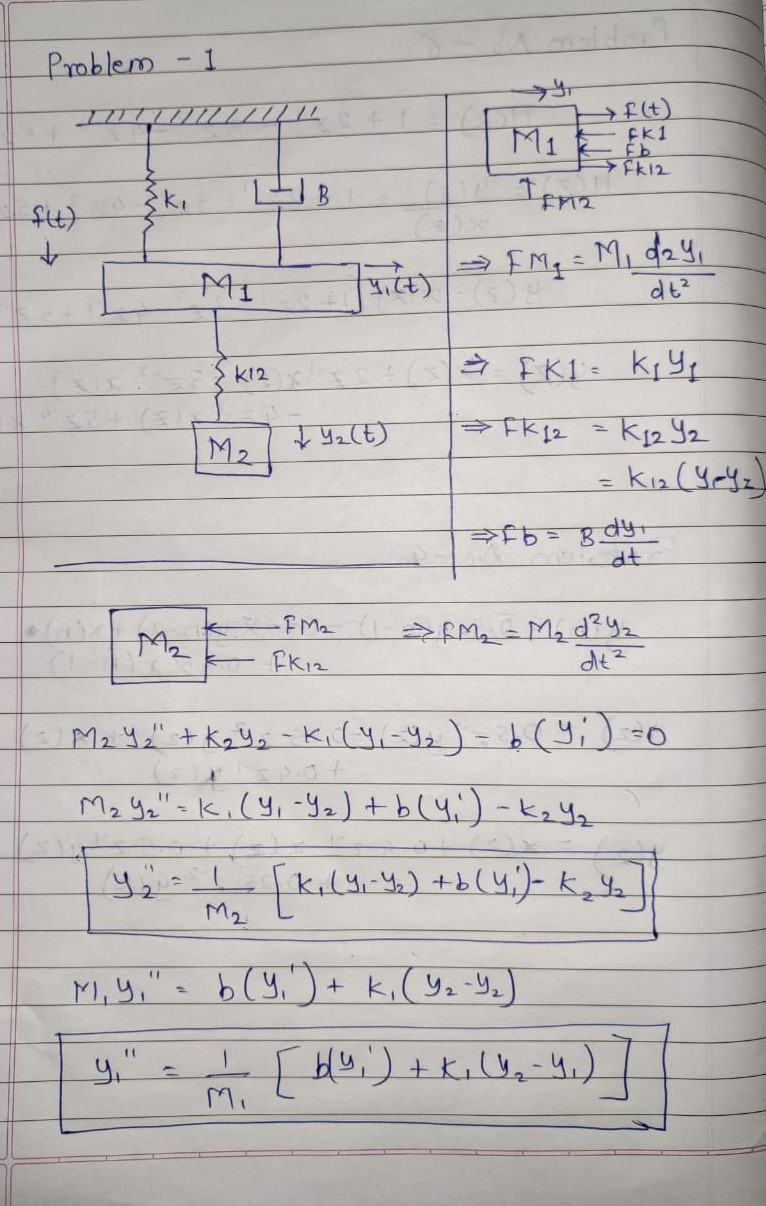 Problem - 1
K1
B
f(t)
M1
y1(t)
K12
M2
y2(t)
y1
M1
f(t)
fK1
fb
fK12
fM2
⇒ fM1 = M1 d2y1/dt²
⇒ fK1 = K1 y1
⇒ fK12 = K12 y2
= K12 (y1-y2)
⇒ fb = B dy1/dt
M2
fM2
fK12
⇒ fM2 = M2 d²y2/dt²
M2 y2" + K2 y2 - K1 (y1-y2) - b (y1') = 0
M2 y2" = K1 (y1-y2) + b(y1') - K2 y2
y2" = 1/M2 [K1(y1-y2) + b(y1') - K2 y2]
M1 y1" = b(y1') + K1 (y2-y2)
y1" = 1/M1 [b(y1') + K1 (y2-y1)]